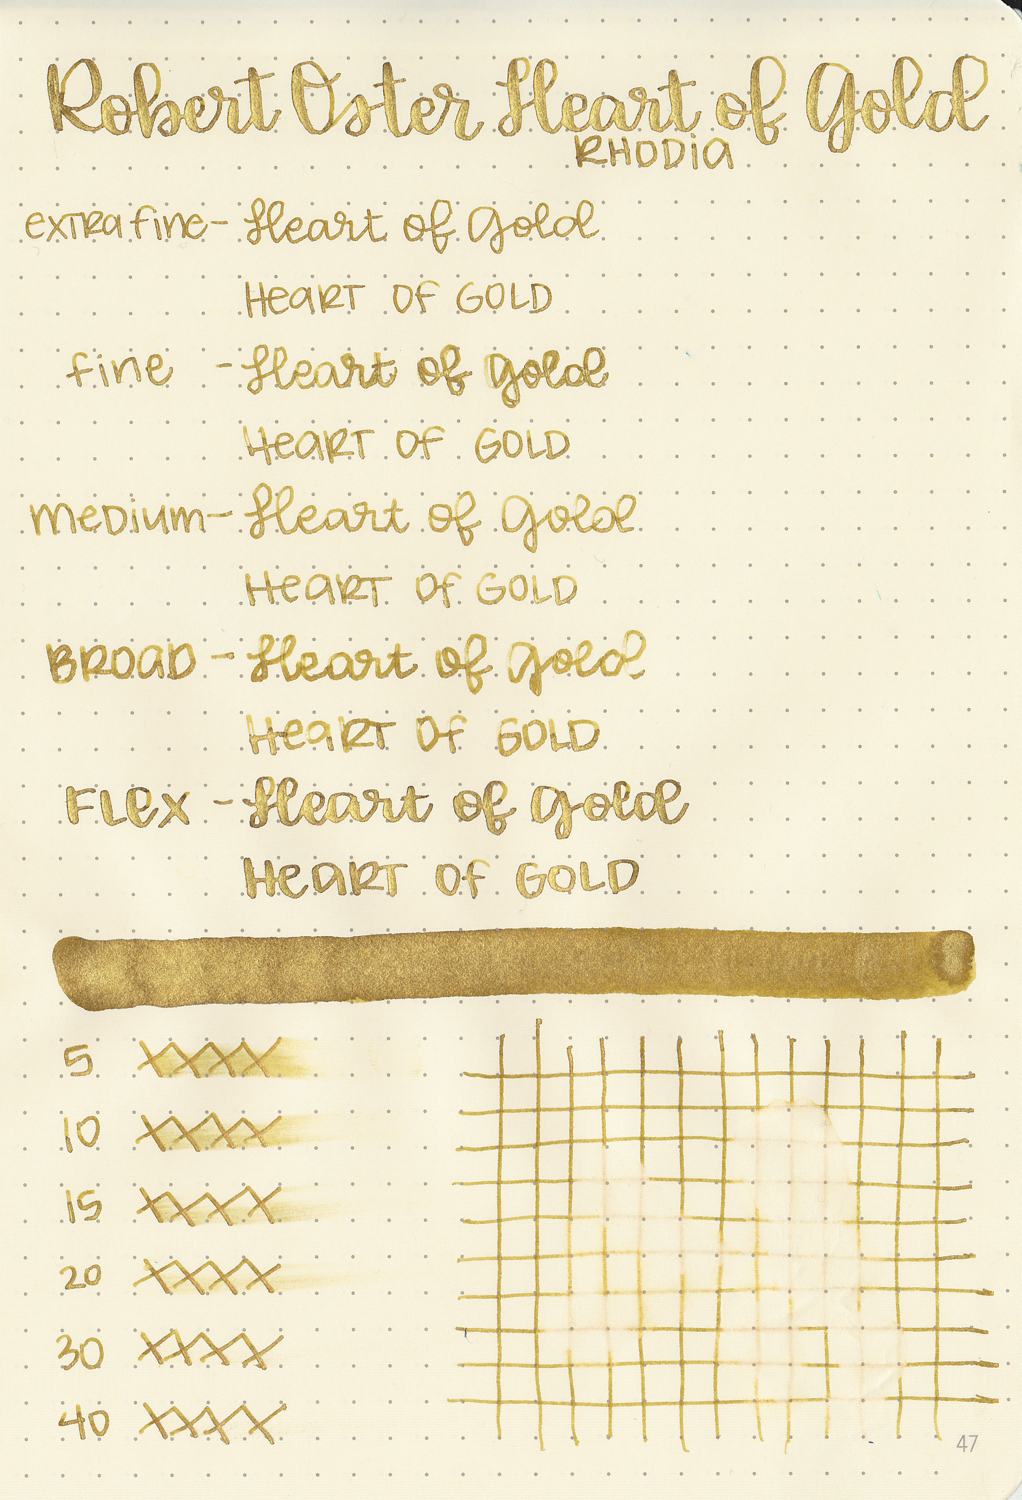 Robert Oster Heart of Gold
RHODIA
extra fine - Heart of Gold
HEART OF GOLD
fine - Heart of Gold
HEART OF GOLD
medium - Heart of Gold
HEART OF GOLD
BROAD - Heart of Gold
HEART OF GOLD
FLEX - Heart of Gold
HEART OF GOLD
5 XXXX
10 XXXX
15 XXXX
20 XXXX
30 XXXX
40 XXXX
47